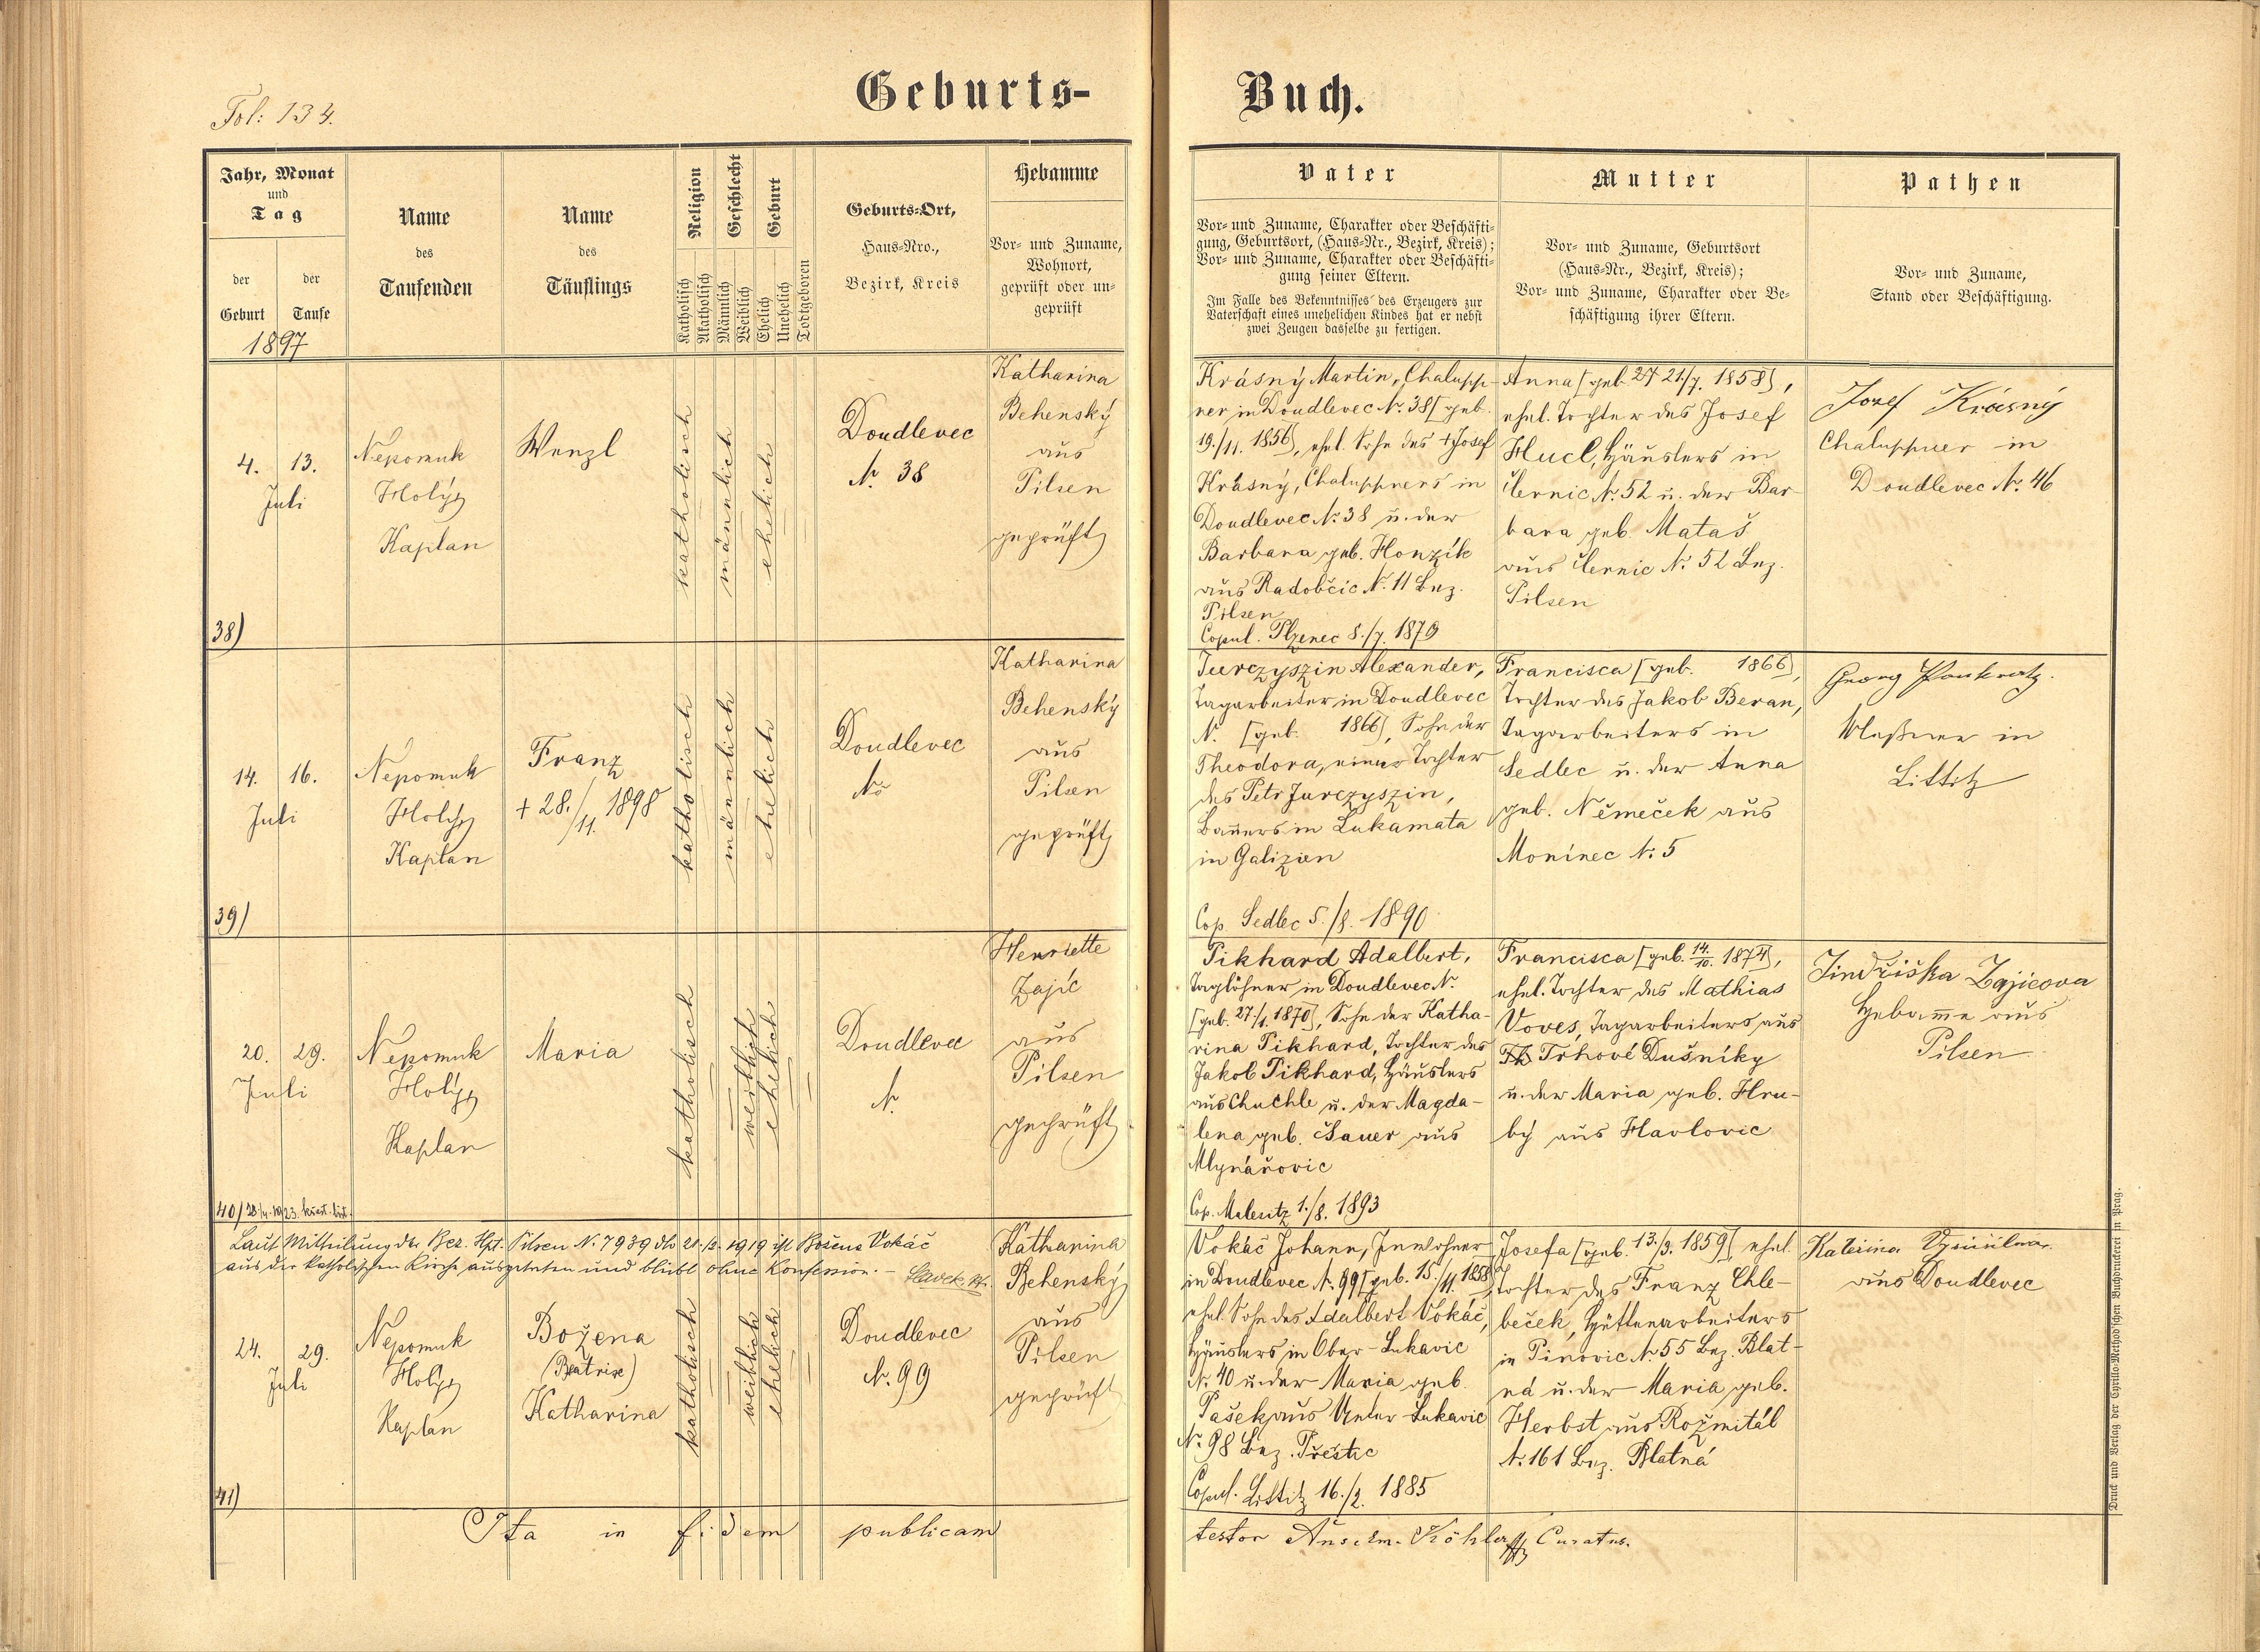 Fol: 134.
Geburts-Buch.
Jahr, Monat
und
Tag
der Geburt
der Taufe
1897
Name
des
Taufenden
Name
des
Täuflings
Religion
Katholisch
Akatholisch
Geschlecht
Männlich
Weiblich
Geburt
Ehelich
Unehelich
Todtgeboren
Geburts-Ort,
Haus-Nro.,
Bezirk, Kreis
Hebamme
Vor- und Zuname,
Wohnort,
geprüft oder un-
geprüft
Vater
Vor- und Zuname, Charakter oder Beschäfti-
gung, Geburtsort, (Haus-Nr., Bezirk, Kreis);
Vor- und Zuname, Charakter oder Beschäfti-
gung seiner Eltern.
Im Falle des Bekenntnisses des Erzeugers zur
Vaterschaft eines unehelichen Kindes hat er nebst
zwei Zeugen dasselbe zu fertigen.
Mutter
Vor- und Zuname, Geburtsort
(Haus-Nr., Bezirk, Kreis);
Vor- und Zuname, Charakter oder Be-
schäftigung ihrer Eltern.
Pathen
Vor- und Zuname,
Stand oder Beschäftigung.
4. 13.
Juli
38)
Nepomuk
Holý
Kaplan
Wenzl
katholisch
männlich
ehelich
Doudlevec
N. 38
Katharina
Behenský
aus
Pilsen
geprüft
Krásný Martin, Chalupp-
ner in Doudlevec N. 38 [geb.
19./11. 1856], ehel. Sohn des + Josef
Krásný, Chaluppners in
Doudlevec N. 38 u. der
Barbara geb. Honzík
aus Radobčic N. 11 Bez.
Pilsen
Copul. Plzenec 8./7. 1879
Anna [geb. 21/7. 1858],
ehel. Tochter des Josef
Hucl, Häuslers in
Černic N. 52 u. der Bar-
bara geb. Mataš
aus Černic N. 52 Bez.
Pilsen
Josef Krásný
Chaluppner in
Doudlevec N. 46
14. 16.
Juli
39)
Nepomuk
Holý
Kaplan
Franz
+ 28./11. 1898
katholisch
männlich
ehelich
Doudlevec
No
Katharina
Behenský
aus
Pilsen
geprüft
Jurczyszin Alexander,
Tagarbeiter in Doudlevec
N. [geb. 1866], Sohn der
Theodora, einer Tochter
des Petr Jurczyszin,
Bauers in Lukamata
in Galizien
Cop. Sedlec 5./8. 1890
Francisca [geb. 1866],
Tochter des Jakob Beran,
Tagarbeiters in
Sedlec u. der Anna
geb. Němeček aus
Monínec N. 5
Georg Pankratz.
Meßner in
Littitz
20. 29.
Juli
40) 28./4. 1923. křest. list.
Nepomuk
Holý
Kaplan
Maria
katholisch
weiblich
ehelich
Doudlevec
N.
Henriette
Zajíc
aus
Pilsen
geprüft
Pikhard Adalbert,
Taglöhner in Doudlevec N.
[geb. 27./1. 1870], Sohn der Katha-
rina Pikhard, Tochter des
Jakob Pikhard, Häuslers
aus Chuchle u. der Magda-
lena geb. Šauer aus
Mlynářovic
Cop. Malesitz 1./8. 1893
Francisca [geb. 14./10. 1874],
ehel. Tochter des Mathias
Voves, Tagarbeiters aus
Trhové Dušníky
u. der Maria geb. Hru-
bý aus Havlovic
Jindřiška Zajicova
Hebamme aus
Pilsen
Laut Mitteilung der Bez. Hpt. Pilsen N. 7939 dto 21./2. 1919 ist Božena Vokáč
aus der katholischen Kirche ausgetreten und bleibt ohne Konfession. -
24. 29.
Juli
41)
Nepomuk
Holý
Kaplan
Božena
(Beatrix)
Katharina
katholisch
weiblich
ehelich
Doudlevec
N. 99
Katharina
Behenský
aus
Pilsen
geprüft
Vokáč Johann, Inwohner
in Doudlevec N. 99 [geb. 15./11. 1858],
ehel. Sohn des Adalbert Vokáč,
Häuslers in Ober-Lukavic
N. 40 u. der Maria geb.
Pašek aus Unter-Lukavic
N. 98 Bez. Přeštic
Copul. Littitz 16./2. 1885
Josefa [geb. 13./3. 1859] ehel.
Tochter des Franz Chle-
beček, Hüttenarbeiters
in Pinovic N. 55 Bez. Blat-
ná u. der Maria geb.
Herbst aus Rožmitál
N. 161 Bez. Blatná
Kateřina
aus Doudlevec
Ita in fidem publicam
testor Anselm. Köhler Curatus.
Druck und Verlag der Cyrillo-Method'schen Buchdruckerei in Prag.